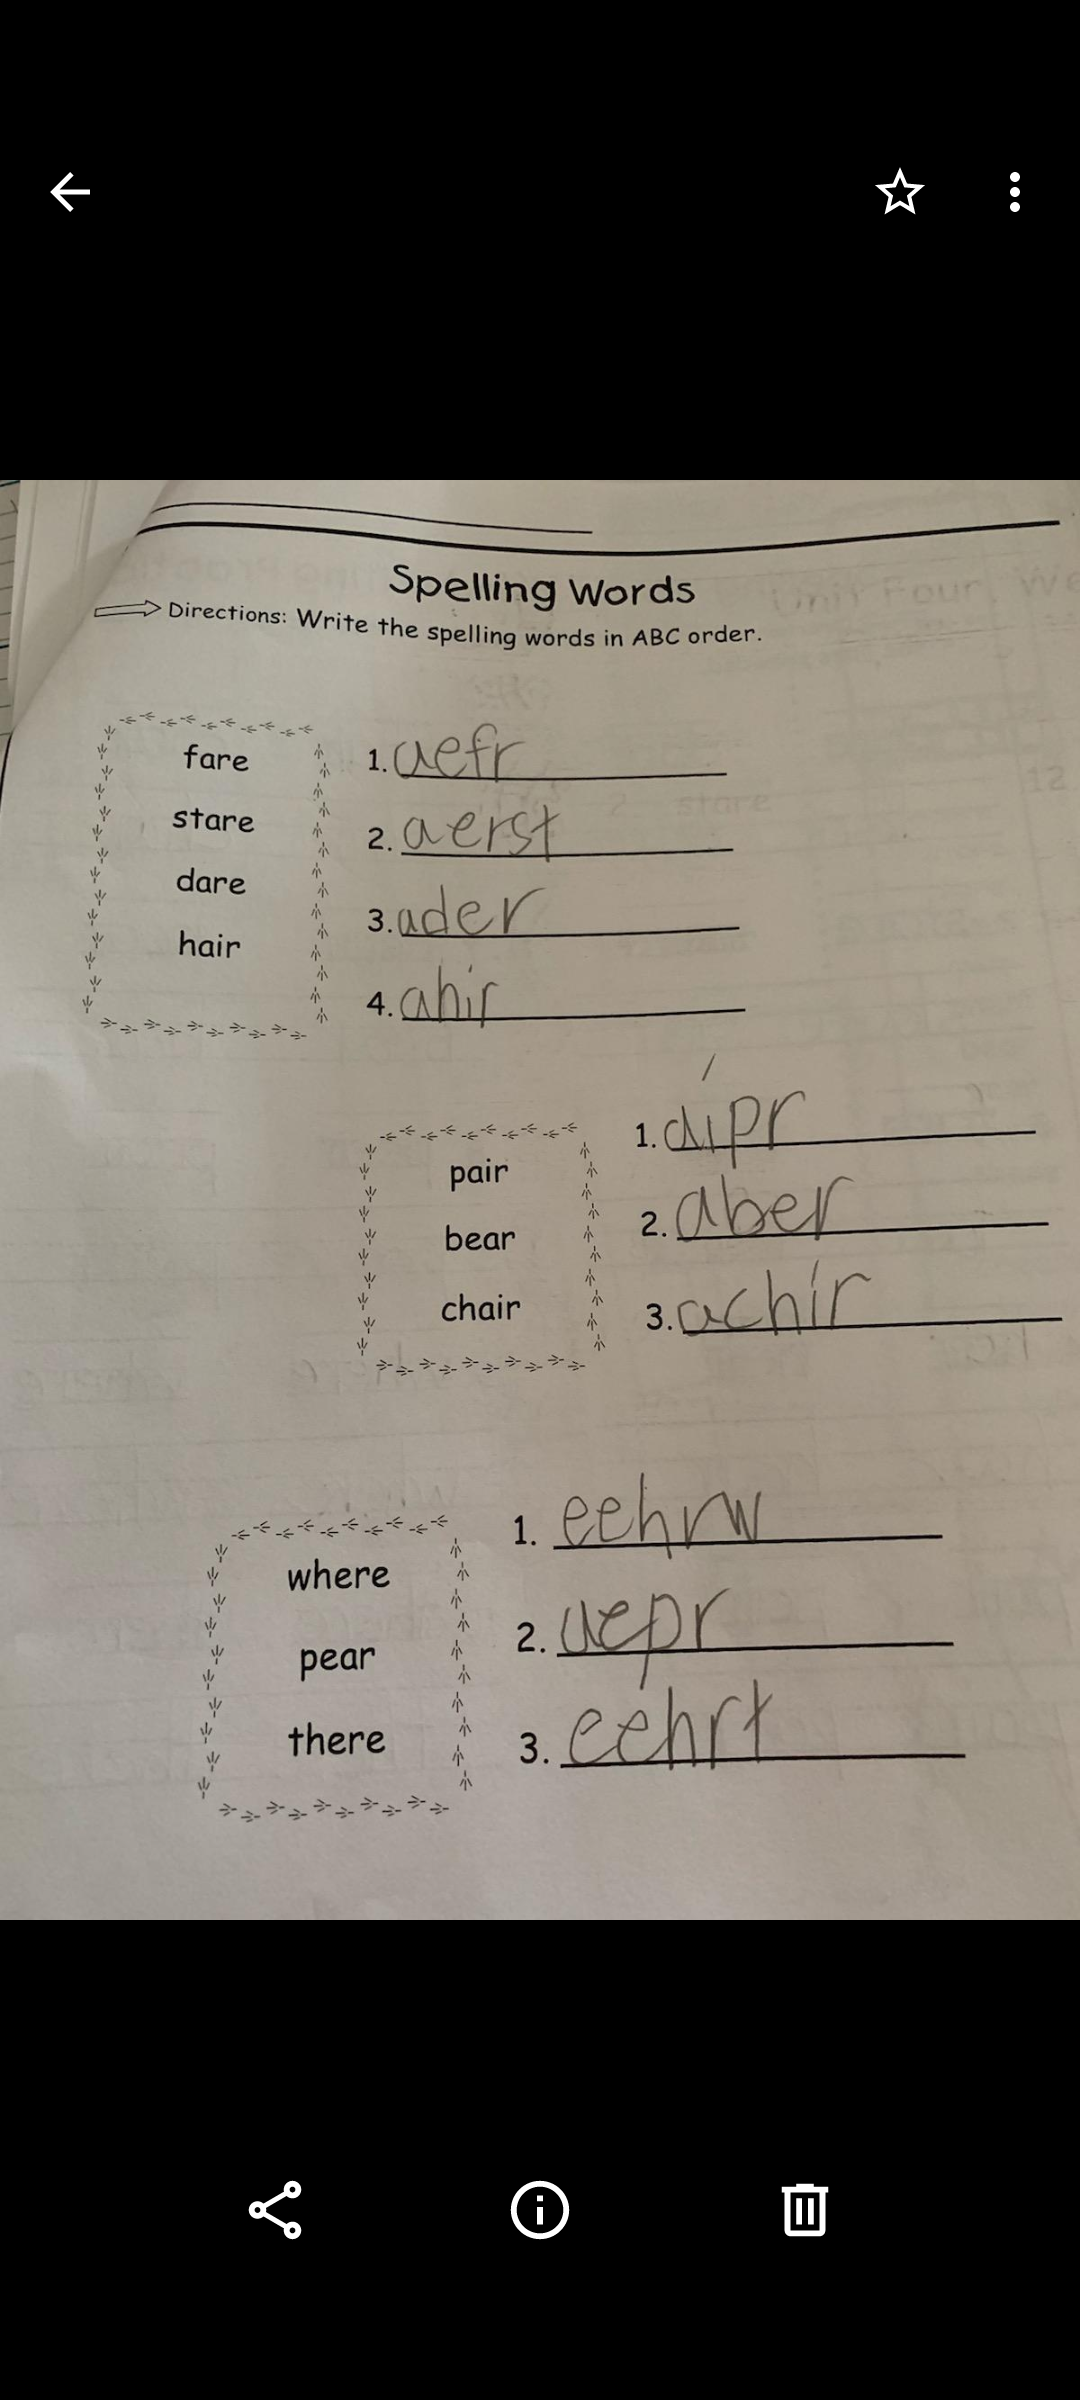 Spelling Words
Directions: Write the spelling words in ABC order.
fare
stare
dare
hair
1. aefr
2. aerst
3. ader
4. ahir
pair
bear
chair
1. aipr
2. aber
3. achir
where
pear
there
1. eehrw
2. aepr
3. eehrt